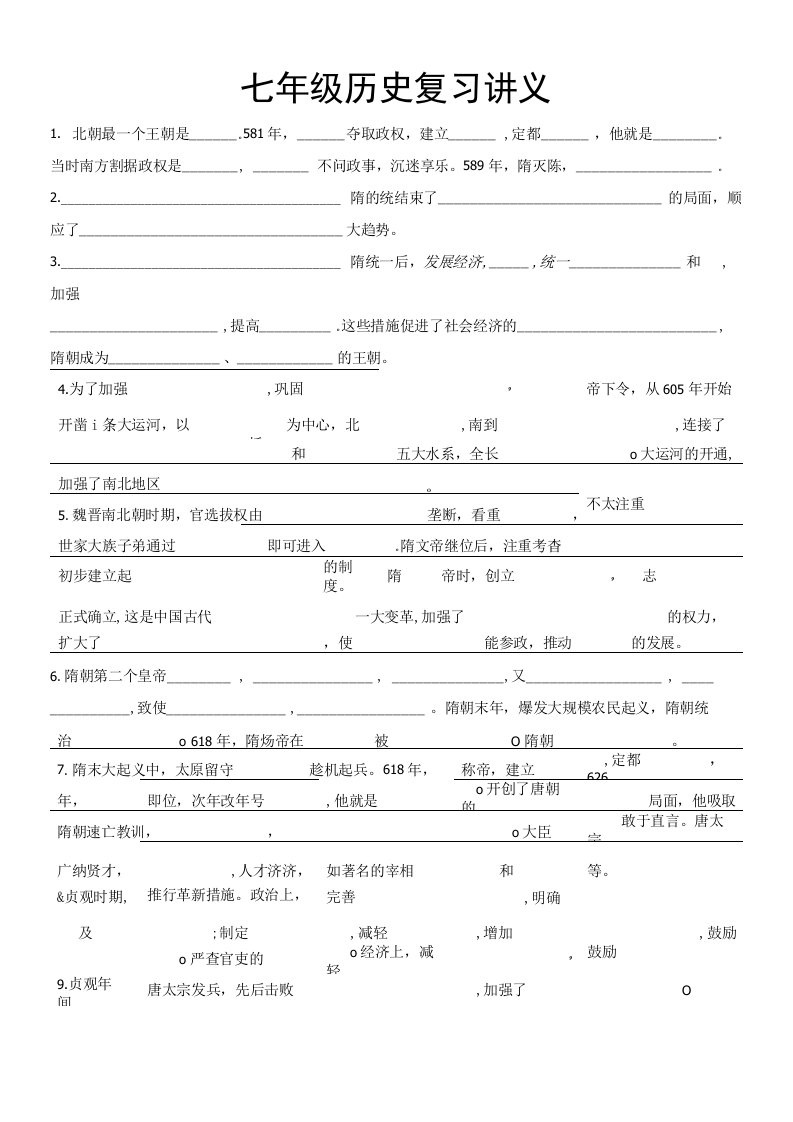 七年级历史复习讲义
1. 北朝最一个王朝是______.581 年，______夺取政权，建立______ ,定都______ ，他就是________.
当时南方割据政权是_______，_______ 不问政事，沉迷享乐。589 年，隋灭陈，_________________ .
2.___________________________________ 隋的统结束了____________________________ 的局面，顺
应了_________________________________ 大趋势。
3.___________________________________ 隋统一后，发展经济,_____ ,统一______________ 和 ,
加强
_____________________ ,提高_________ .这些措施促进了社会经济的_________________________,
隋朝成为______________ 、____________ 的王朝。
4.为了加强 ,巩固 ， 帝下令，从 605 年开始
开凿 i 条大运河，以 为中心，北 ,南到 ,连接了
和 五大水系，全长 o 大运河的开通,
加强了南北地区 。
5. 魏晋南北朝时期，官选拔权由 垄断，看重 ， 不太注重
世家大族子弟通过 即可进入 .隋文帝继位后，注重考杳
初步建立起 的制度。 隋 帝时，创立 ， 志
正式确立,这是中国古代 一大变革,加强了 的权力，
扩大了 ，使 能参政，推动 的发展。
6. 隋朝第二个皇帝________ ，_______________ , ______________,又_________________ , ____
__________,致使_______________ ,________________ 。隋朝末年，爆发大规模农民起义，隋朝统
治 o 618 年，隋炀帝在 被 O 隋朝 。
7. 隋末大起义中，太原留守 趁机起兵。618 年， 称帝，建立 ,定都 ， 626
年， 即位，次年改年号 ,他就是 o 开创了唐朝的 局面，他吸取
隋朝速亡教训， ， o 大臣 敢于直言。唐太宗
广纳贤才， ,人才济济， 如著名的宰相 和 等。
&贞观时期, 推行革新措施。政治上， 完善 ,明确
及 ;制定 ,减轻 ,增加 ,鼓励
o 严查官吏的 o 经济上，减轻 ， 鼓励
9.贞观年间 唐太宗发兵，先后击败 ,加强了 O